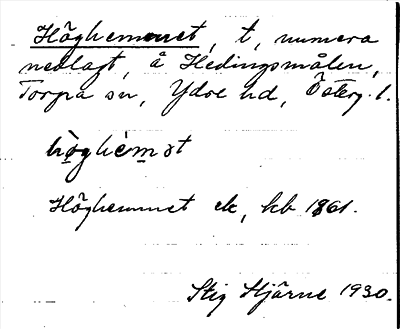 Höghemmet, t, numera
nedlagt, å Hedingsmålen,
Torpa sn, Ydre hd, Österg. l.
Höghemmet ck, kb 1861.
Stig Hjärne 1930.